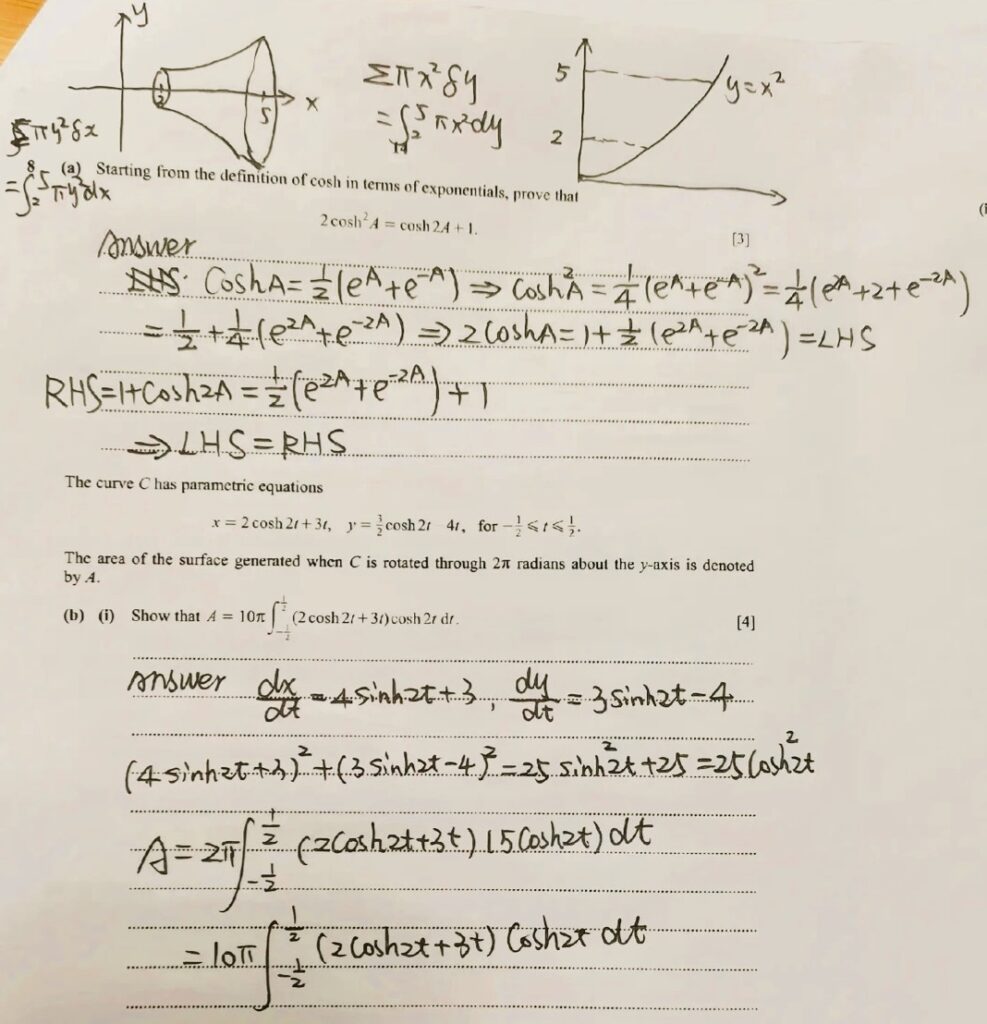 y
x
2
5
Σπy²δx
=∫₂⁵πy²dx
Σπx²δy
=∫₂⁵ πx²dy
5
2
y=x²
8 (a) Starting from the definition of cosh in terms of exponentials, prove that
2 cosh² A = cosh 2A + 1.
[3]
Answer
RHS: CoshA=½(e^A+e^-A) ⇒ Cosh²A=¼(e^A+e^-A)²=¼(e^2A+2+e^-2A)
=½+¼(e^2A+e^-2A) ⇒ 2CoshA=1+½(e^2A+e^-2A)=LHS
RHS=1+Cosh2A=½(e^2A+e^-2A)+1
⇒ LHS=RHS
The curve C has parametric equations
x = 2 cosh 2t + 3t, y = 3/2 cosh 2t 4t, for −½ ⩽ t ⩽ ½.
The area of the surface generated when C is rotated through 2π radians about the y-axis is denoted
by A.
(b) (i) Show that A = 10π ∫_{-½}^{½} (2 cosh 2t + 3t) cosh 2t dt.
[4]
Answer dx/dt = 4sinh2t+3, dy/dt = 3sinh2t−4
(4sinh2t+3)²+(3sinh2t−4)²=25sinh²2t+25=25Cosh²2t
A=2π∫_{-½}^{½} (2Cosh2t+3t)(5Cosh2t) dt
=10π∫_{-½}^{½} (2Cosh2t+3t) Cosh2t dt